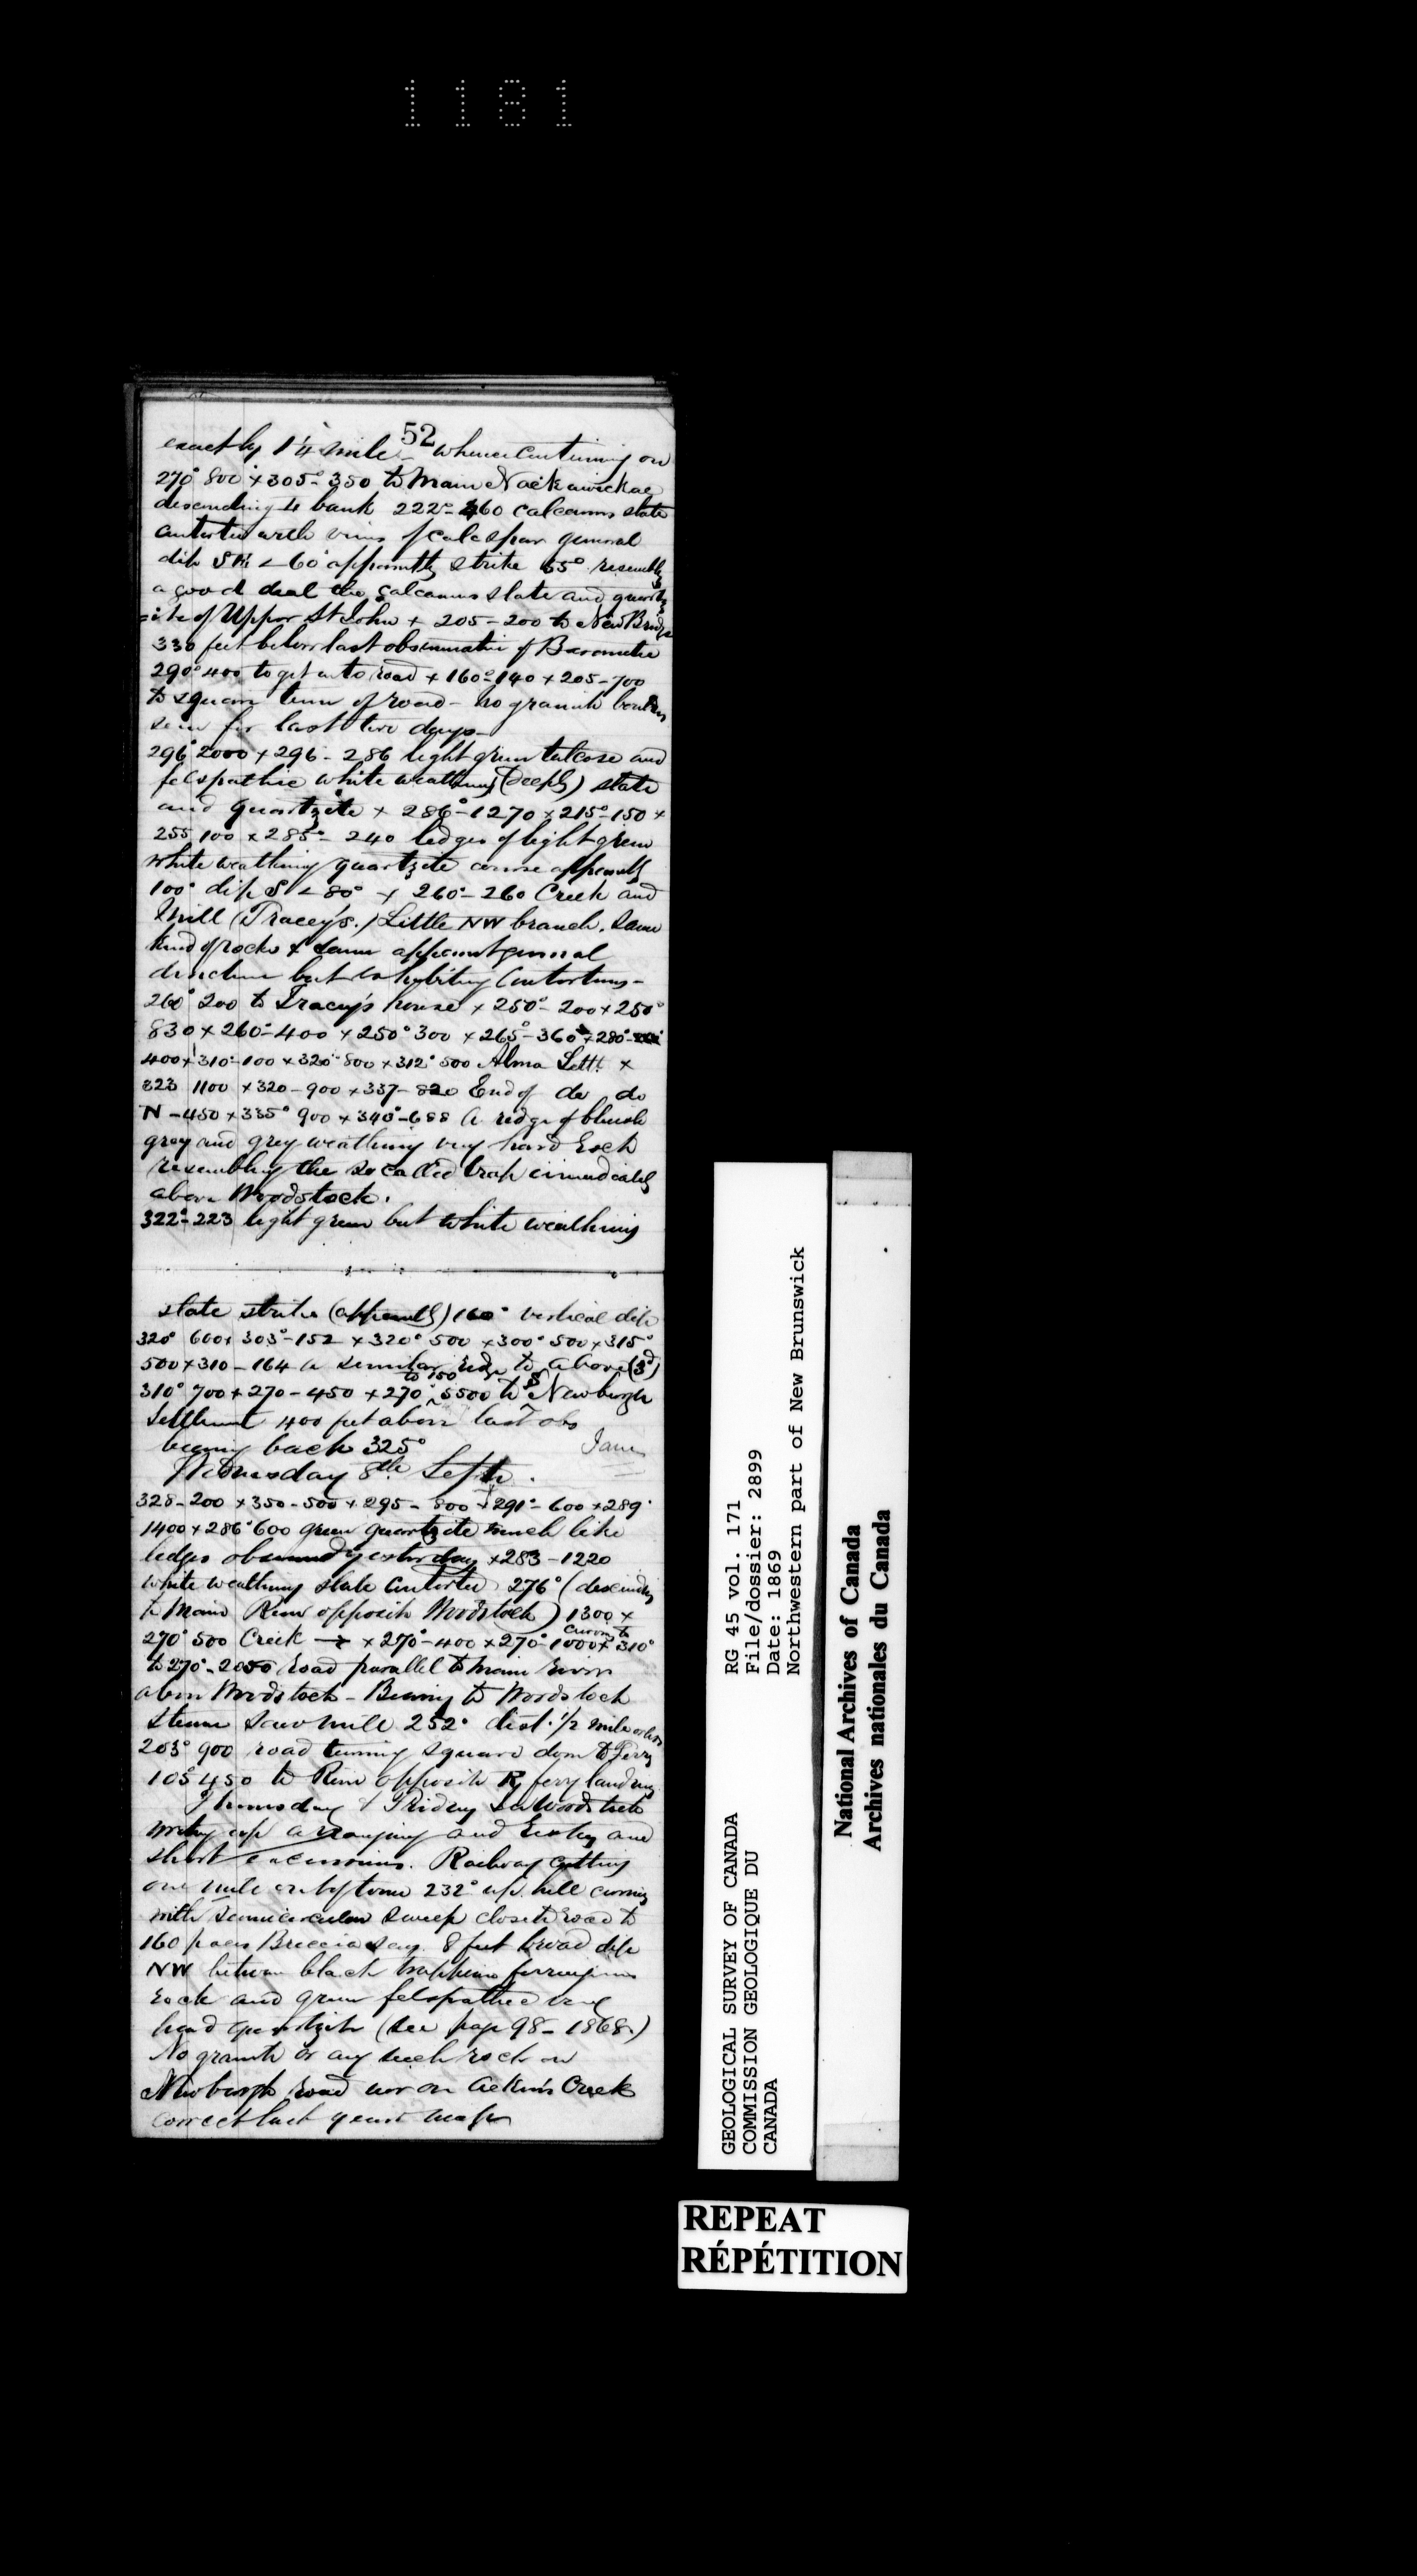 1181
52
exactly 1¼ mile - whence continuing on
270° 800 x 305° - 350 to Main Nackawickac
descending to bank 222° - 260 calcareous slate
contorted with veins of calcspar general
dip SE < 60° apparently strike 55° resembling
a good deal the calcareous slate and quartz
=ite of Upper St John + 205 - 200 to New Bridge
330 feet below last observation of Barometer
290° 400 to get onto road + 160° 140 + 205 - 700
to square turn of road - no granite boulders
seen for last two days -
296° 2000 + 296 - 286 light green talcose and
felspathic white weathering (deeply) slate
and quartzite x 286° - 1270 x 215° - 150 x
255 100 x 285° - 240 ledges of light green
white weathering quartzite course apparently
100° dip S < 80° x 260° - 260 Creek and
Mill (Tracey's.) Little NW branch. Same
kind of rocks & same apparent general
direction but exhibiting contortions -
260° 200 to Tracey's house x 250° - 200 x 250°
830 x 260° - 400 x 250° 300 x 265° - 360 x 280° -
400 x 310° - 100 x 320° 800 x 312° 500 Alma Settt. x
323 1100 x 320 - 900 x 337 - 820 End of do do
N - 450 x 335° 900 x 340° - 688 A ridge of bluish
grey and grey weathering very hard rock
resembling the so called trap immediately
above Woodstock.
322° - 223 light green but white weathering
slate strike (apparently) 160° vertical dip
320° 600 x 303° - 152 x 320° 500 x 300° 500 x 315°
500 x 310 - 164 a similar ridge to above (3d)
310° 700 + 270 - 450 + 270° 5500 to S Newburgh
Settlement 400 feet above last obs
bearing back 325°
Wednesday 8th Septr.
328 - 200 x 350 - 500 x 295 - 800 x 291° - 600 x 289°
1400 x 286° 600 green quartzite much like
ledges observed yesterday x 283 - 1220
white weathering slate contorted 276° (descending
to Main River opposite Woodstock) 1300 x
270° 500 Creek → x 270° - 400 x 270° 1000 x curving to 310°
to 270° - 2050 road parallel to main river
above Woodstock - Bearing to Woodstock
steam saw mill 252° dist. ½ mile or less
203° 900 road turning square down to Ferry
105° 450 to River opposite ferry landing
Thursday & Friday Woodstock
writing up arranging and resting and
short excursions. Railway cutting
one mile out of town 232° up hill curving
with semicircular sweep close to road to
160 paces Breccia say 8 feet broad dip
NW between black trappean ferruginous
rock and green felspathic very
hard quartzite (see page 98 - 1868.)
No granite or any such rock on
Newburgh road nor on Acker's Creek
correct last years map
GEOLOGICAL SURVEY OF CANADA
COMMISSION GEOLOGIQUE DU
CANADA
RG 45 vol. 171
File/dossier: 2899
Date: 1869
Northwestern part of New Brunswick
National Archives of Canada
Archives nationales du Canada
REPEAT
RÉPÉTITION